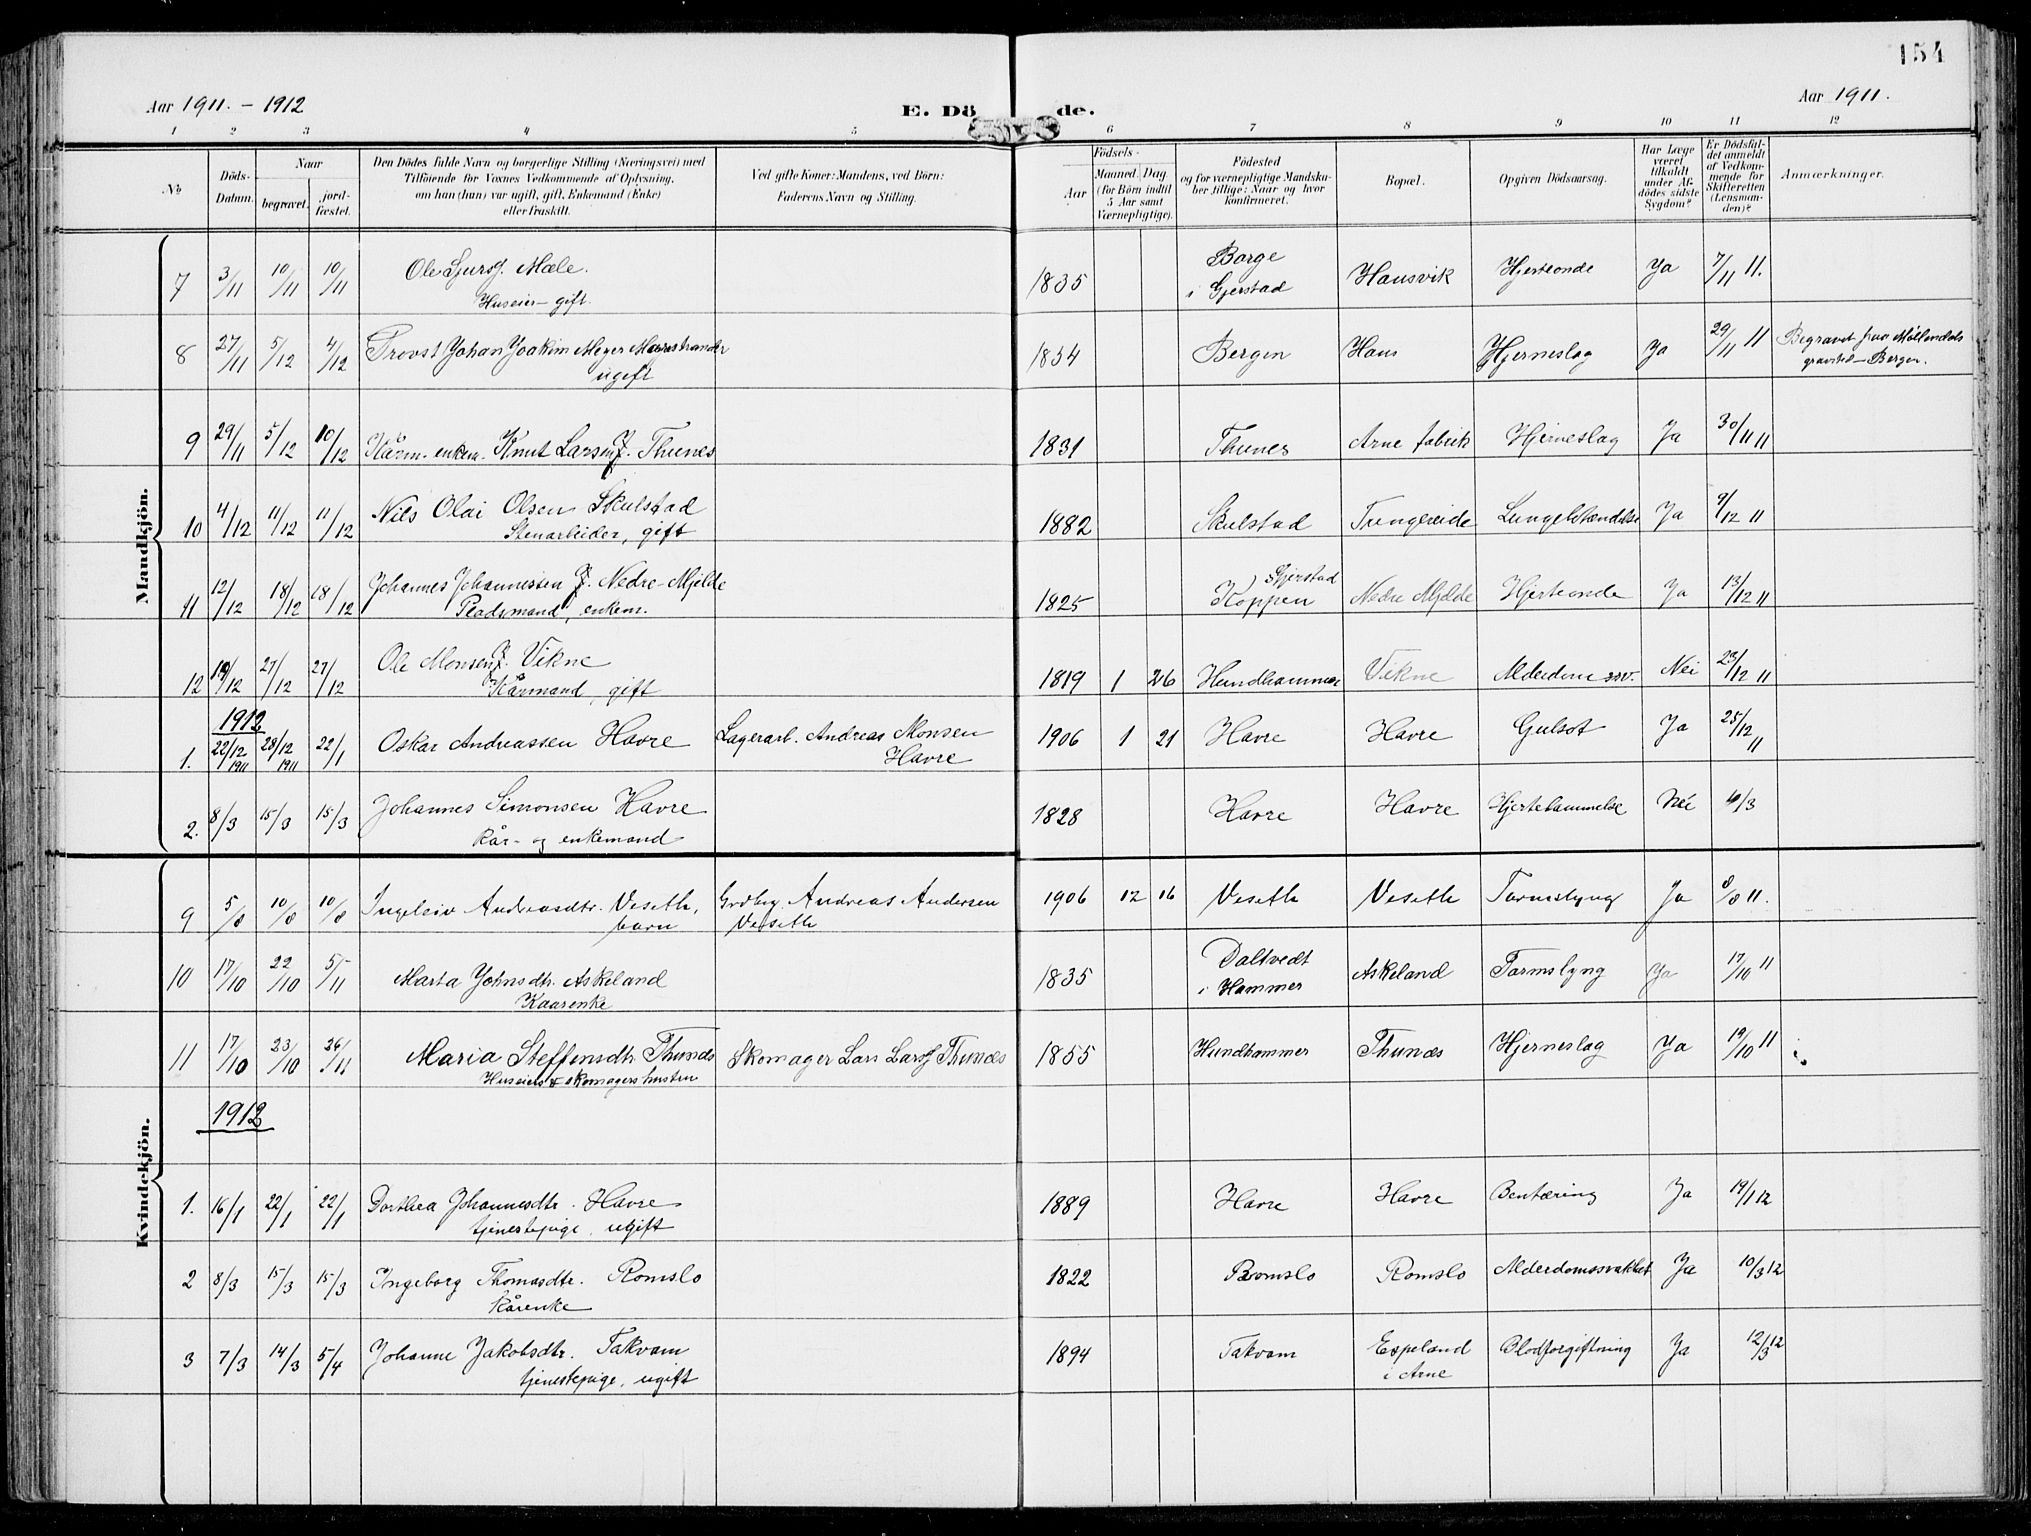 154
Aar 1911. – 1912
E. Dö de.
Aar 1911.
1 2 3 4 5 6 7 8 9 10 11 12
No
Döds-Datum.
Naar
begravet.
jord-fæstet.
Den Dödes fulde Navn og borgerlige Stilling (Næringsvei) med
Tilföiende for Voxnes Vedkommende af Oplysning,
om han (hun) var ugift, gift, Enkemand (Enke)
eller fraskilt.
Ved gifte Koner: Mandens, ved Börn:
Faderens Navn og Stilling.
Födsels-
Aar
Maaned. Dag.
(for Börn indtil
5 Aar samt
Værnepligtige).
Födested
og for værnepligtige Mandsku-
ber tillige: Naar og hvor
konfirmeret.
Bopæl.
Opgiven Dödsaarsag.
Har Læge
været
tilkaldt
under Af-
dödes sidste
Sygdom?
Er Dödsfal-
det anmeldt
af Vedkom-
mende for
Skifteretten
(Lensman-
den)?
Anmærkninger.
Mandkjön.
7 3/11 10/11 10/11 Ole Sjursf. Mæle. 1835 Borge Hausvik Hjerteonde Ja 7/11 11.
Huseier – gift. i Gjerstad
8 27/11 5/12 4/12 Provst Johan Joakim Meyer Magnstrander 1834 Bergen Haus Hjerneslag Ja 29/11 11 Begravet fra Møllendals
ugift gravsted – Bergen.
9 29/11 5/12 10/12 Kårm. enkem. Knut Larsenf. Thunes 1831 Thunes Arne fabrik Hjerneslag Ja 30/11 11
10 4/12 11/12 11/12 Nils Olai Olsen Skulstad 1882 Skulstad Tungereide Lungebetændelse Ja 9/12 11
Stenarbeider, gift
11 12/12 18/12 18/12 Johannes Johannessen f. Nedre-Mjelde 1825 Koppen Gjerstad Nedre Mjelde Hjerteonde Ja 13/12 11
Pladsmand, enkem.
12 19/12 27/12 27/12 Ole Monsenf. Vikne 1819 1 26 Hundhammer Vikne Alderdomssv. Nei 23/12 11
Kårmand, gift
1912
1. 22/12 1911 28/12 1911 22/1 Oskar Andreassen Havre Lagerarb. Andreas Monsen 1906 1 21 Havre Havre Gulsot Ja 25/12 11
Havre
2. 8/3 15/3 15/3 Johannes Simonsen Havre 1828 Havre Havre Hjertelammelse Nei /3
Kår- og enkemand
Kvindekjön.
9 5/8 10/8 10/8 Ingeleiv Andreasdtr. Veseth, Grdbrg. Andreas Andersen 1906 12 16 Veseth Veseth Tarmslyng Ja 8/8 11.
barn Veseth
10 17/10 22/10 5/11 Marta Johnsdtr. Askeland 1835 Daltvedt Askeland Tarmslyng Ja 17/10 11
Kaarenke i Hammer
11 17/10 23/10 26/11 Maria Steffensdtr. Thunæs Skomager Lars Larsf Thunæs 1855 Hundhammer Thunæs Hjerneslag Ja 19/10 11
Huseiers & skomagers hustru
1912
1. 16/1 22/1 22/1 Dorthea Johannesdtr. Havre 1889 Havre Havre Bentæring Ja 19/1 12
tjenestepige, ugift
2 8/3 15/3 15/3 Ingeborg Thomasdtr. Romslo 1822 Romslo Romslo Alderdomssvakhet Ja 10/3 12
Kårenke
3 7/3 14/3 5/4 Johanne Jakobsdtr. Takvam 1894 Takvam Espeland Blodforgiftning Ja 12/3 12
tjenestepige, ugift i Arne